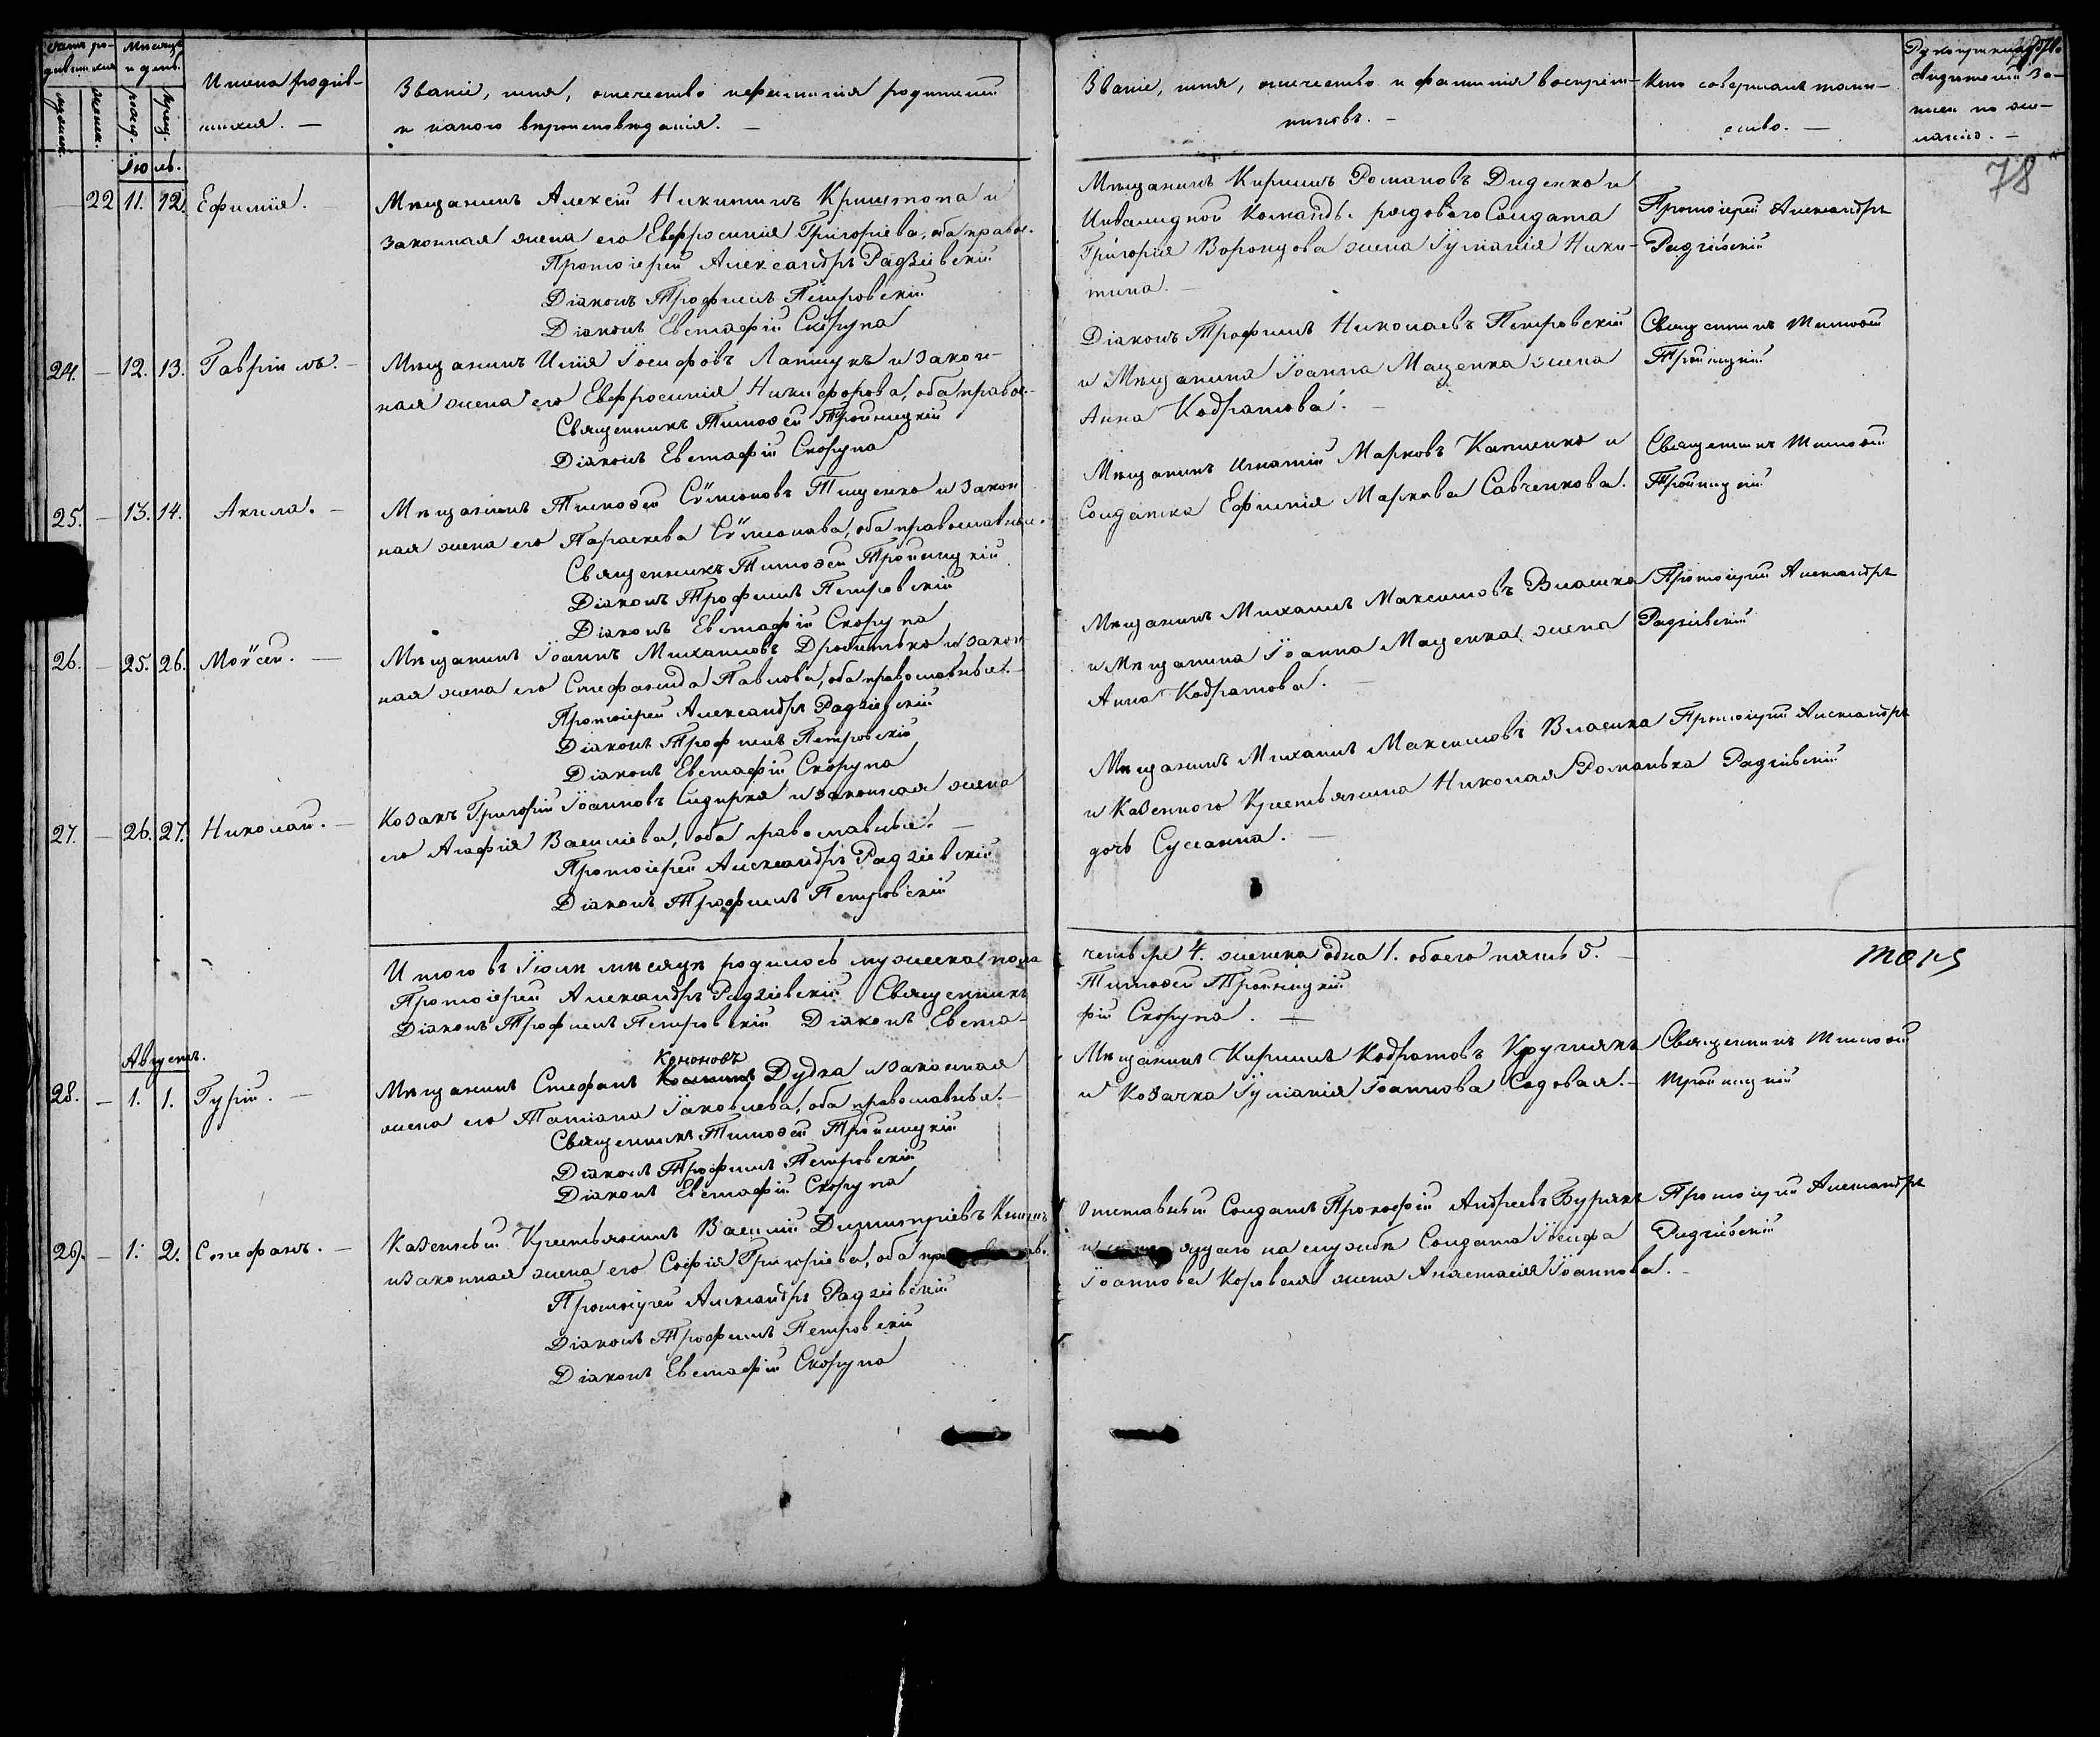 Счетъ ро-
дившихся
Мѣсяцъ
и день.
мужеска.
женска.
рожд.
крещ.
Имена родив-
шихся. —
Званіе, имя, отечество и фамилія родителей
и какого вѣроисповѣданія. —
Званіе, имя, отечество и фамилія воспріем-
никовъ. —
Кто совершалъ таин-
ство. —
Рукоприкладство
свидѣтелей за-
писи по же-
ланію. —
78
Іюль.
22 11. 12. Ефимія. —
Мѣщанинъ Алексѣй Никитинъ и
законная жена его Евфросинія Григоріева, оба правос.
Протоіерей Александръ Радзіевскій
Діаконъ Трофимъ Петровскій
Діаконъ Евстафій Скорупа
Мѣщанинъ Кириллъ Романовъ Диденко и
Инвалидной команды рядоваго Солдата
Григорія Воронцова жена Іуліанія Ники-
тина. —
Протоіерей Александръ
Радзіевскій
24. — 12. 13. Гавріилъ. —
Мѣщанинъ Илія Іосифовъ Лапшукъ и закон-
ная жена его Евфросинія Никифорова, оба правос.
Священникъ Тимоѳей Тройницкій
Діаконъ Евстафій Скорупа
Діаконъ Трофимъ Николаевъ Петровскій
и Мѣщанина Іоанна Маценка жена
Анна Кодратова. —
Священникъ Тимоѳей
Тройницкій
25. — 13. 14. Акила. —
Мѣщанинъ Тимоѳей Сѵмеоновъ Тищенко и закон
ная жена его Параскева Сѵмеонова, оба православные.
Священникъ Тимоѳей Тройницкій
Діаконъ Трофимъ Петровскій
Діаконъ Евстафій Скорупа
Мѣщанинъ Игнатій Марковъ и
Солдатка Ефимія Маркова Савченкова.
Священникъ Тимоѳей
Тройницкій
26. — 25. 26. Моѵсей. —
Мѣщанинъ Іоаннъ Михаиловъ Дробитько и закон
ная жена его Стефанида Павлова, оба православные. —
Протоіерей Александръ Радзіевскій
Діаконъ Трофимъ Петровскій
Діаконъ Евстафій Скорупа
Мѣщанинъ Михаилъ Максимовъ Власенко
и Мѣщанина Іоанна Маценка жена
Анна Кодратова. —
Протоіерей Александръ
Радзіевскій
27. — 26. 27. Николай. —
Козакъ Григорій Іоанновъ Сидирка и законная жена
его Агафія Василіева, оба православные. —
Протоіерей Александръ Радзіевскій
Діаконъ Трофимъ Петровскій
Мѣщанинъ Михаилъ Максимовъ Власенко
и Казеннаго Крестьянина Николая Романька
дочь Сусанна. —
Протоіерей Александръ
Радзіевскій
Итого въ Іюлѣ мѣсяцѣ родилось мужеска пола
четыре 4. женска одна 1. обоего пять 5. —
Протоіерей Александръ Радзіевскій Священникъ
Тимоѳей Тройницкій
Діаконъ Трофимъ Петровскій Діаконъ Евста-
фій Скорупа. —
Августъ.
28. — 1. 1. Гурій. —
Кононовъ
Мѣщанинъ Стефанъ Дудка и законная
жена его Татіана Іаковлева, оба православные. —
Священникъ Тимоѳей Тройницкій
Діаконъ Трофимъ Петровскій
Діаконъ Евстафій Скорупа
Мѣщанинъ Кириллъ Кодратовъ Круглякъ
и Козачка Іуліанія Іоаннова Садовая. —
Священникъ Тимоѳей
Тройницкій
29. — 1. 2. Стефанъ. —
Казенный Крестьянинъ Василій Димитріевъ
и законная жена его Софія Григоріева, оба
Протоіерей Александръ Радзіевскій
Діаконъ Трофимъ Петровскій
Діаконъ Евстафій Скорупа
Отставный Солдатъ Прокофій Андреевъ Бурякъ
и на службѣ Солдата Іосифа
Іоаннова жена Анастасія Іоаннова. —
Протоіерей Александръ
Радзіевскій